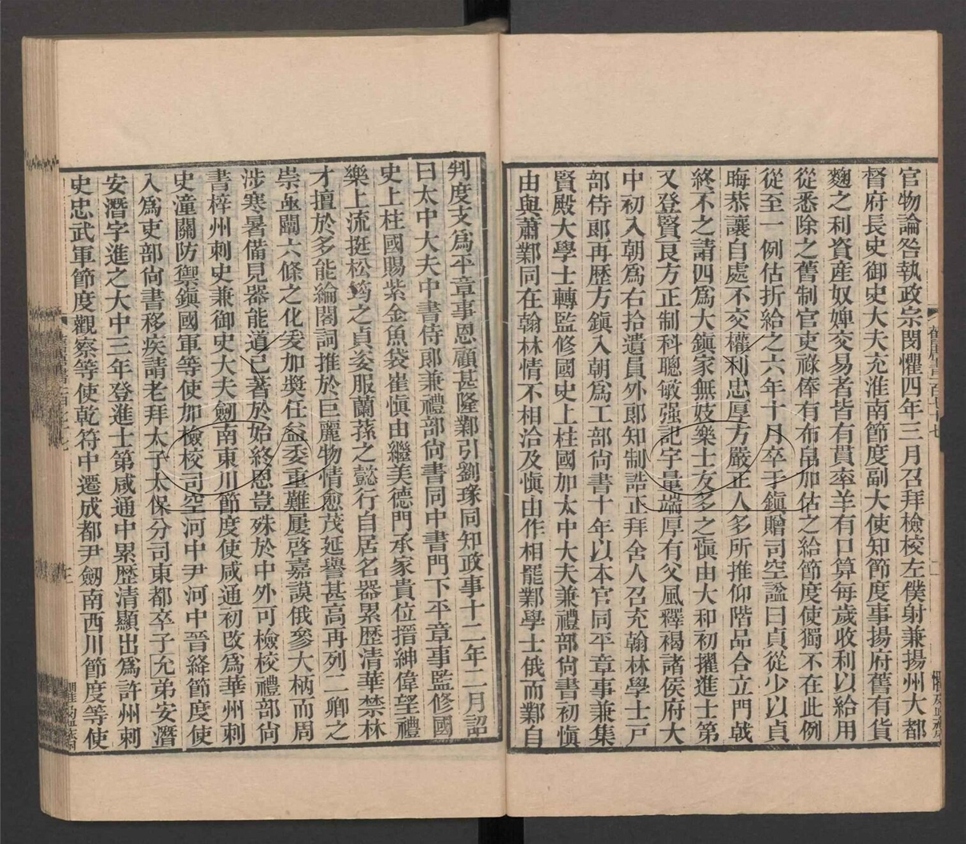 官物論咎執政宗閔懼四年三月召拜檢校左僕射兼揚州大都
督府長史御史大夫充淮南節度副大使知節度事揚府舊有貨
麴之利資產奴婢交易者皆有貫率羊有口算每歲收利以給用
從悉除之舊制官吏祿俸有布帛加估之給節度使獨不在此例
從至一例估折給之六年十月卒于鎮贈司空謚曰貞從少以貞
晦恭讓自處不交權利忠厚方嚴正人多所推仰階品合立門戟
終不之請四為大鎮家無妓樂士友多之慎由大和初擢進士第
又登賢良方正制科聰敏强記宇量端厚有父風釋褐諸侯府大
中初入朝為右拾遺員外郎知制誥正拜舍人召充翰林學士戶
部侍郎再歷方鎮入朝為工部尚書十年以本官同平章事兼集
賢殿大學士轉監修國史上柱國加太中大夫兼禮部尚書初慎
由與蕭鄴同在翰林情不相洽及慎由作相罷鄴學士俄而鄴自
判度支為平章事恩顧甚隆鄴引劉瑑同知政事十二年二月詔
曰太中大夫中書侍郎兼禮部尚書同中書門下平章事監修國
史上柱國賜紫金魚袋崔慎由繼美德門承家貴位搢紳偉望禮
樂上流挺松筠之貞姿服蘭蓀之懿行自居名器累歷清華禁林
才擅於多能綸閣詞推於巨麗物情愈茂延譽甚高再列二卿之
崇亟闡六條之化爰加奬任益委重難屢啓嘉謨俄參大柄而周
涉寒暑備見器能道已著於始終恩豈殊於中外可檢校禮部尚
書梓州刺史兼御史大夫劒南東川節度使咸通初改為華州刺
史潼關防禦鎮國軍等使加檢校司空河中尹河中晉絳節度使
入為吏部尚書移疾請老拜太子太保分司東都卒子允弟安潛
安潛字進之大中三年登進士第咸通中累歷清顯出為許州刺
史忠武軍節度觀察等使乾符中遷成都尹劒南西川節度等使